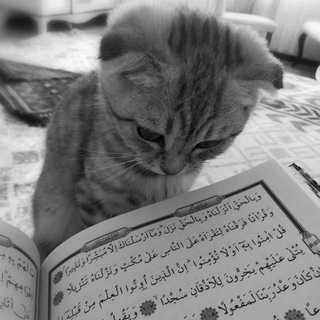 وَبِالْحَقِّ اَنْزَلْنَاهُ وَبِالْحَقِّ نَزَلَ وَمَا اَرْسَلْنَاكَ اِلَّا مُبَشِّرًا وَنَذِيرًا
وَقُرْاٰنًا فَرَقْنَاهُ لِتَقْرَاَهُ عَلَى النَّاسِ عَلٰى مُكْثٍ وَنَزَّلْنَاهُ تَنْزِيلًا
قُلْ اٰمِنُوا بِهِ اَوْ لَا تُؤْمِنُوا اِنَّ الَّذِينَ اُوتُوا الْعِلْمَ مِنْ قَبْلِهِ
يُتْلٰى عَلَيْهِمْ يَخِرُّونَ لِلْاَذْقَانِ سُجَّدًا وَيَقُولُ
كَانَ وَعْدُ رَبِّنَا لَمَفْعُولًا